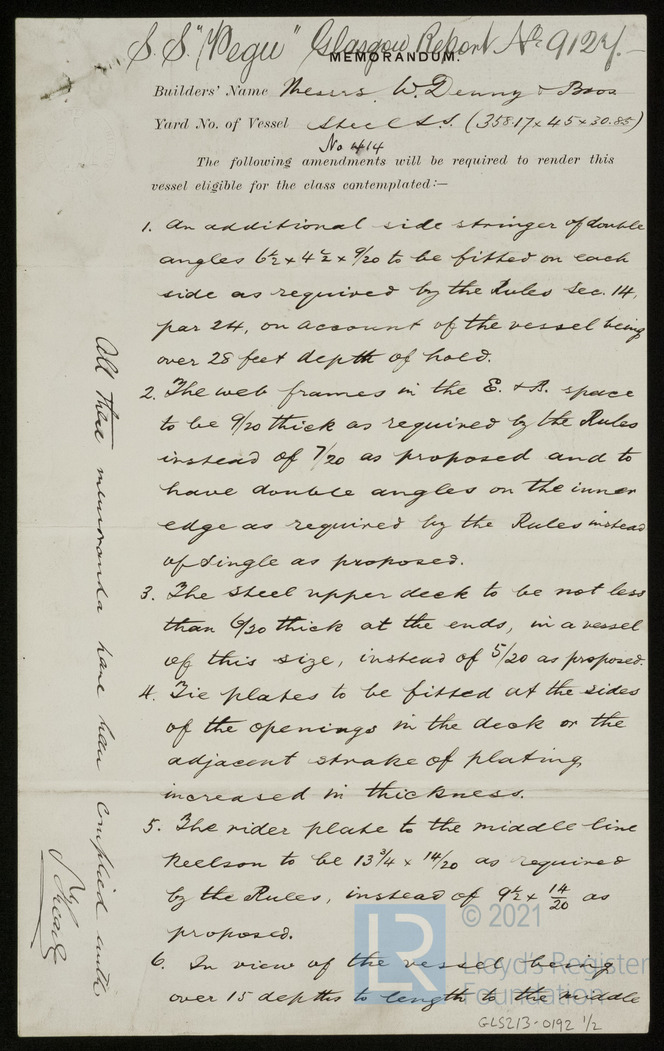 S.S. "Pegu" Glasgow Report No 9124.-
MEMORANDUM.
Builders' Name Messrs. W. Denny & Bros
Yard No. of Vessel Steel S.S. (358.17 x 45 x 30.85)
No 414
The following amendments will be required to render this
vessel eligible for the class contemplated:—
1. An additional side stringer of double
angles 6½ x 4½ x 9/20 to be fitted on each
side as required by the Rules Sec. 14,
par 24, on account of the vessel being
over 28 feet depth of hold.
2. The web frames in the E. & B. space
to be 9/20 thick as required by the Rules
instead of 7/20 as proposed and to
have double angles on the inner
edge as required by the Rules instead
of single as proposed.
3. The steel upper deck to be not less
than 6/20 thick at the ends, in a vessel
of this size, instead of 5/20 as proposed.
4. Tie plates to be fitted at the sides
of the openings in the deck or the
adjacent strake of plating
increased in thickness.
5. The rider plate to the middle line
Keelson to be 13¾ x 14/20 as required
by the Rules, instead of 9½ x 14/20 as
proposed.
6. In view of the vessel being
over 15 depths to length to the middle
All these memoranda have been complied with
LR
© 2021
Lloyd's Register
Foundation
GLS213-0192 1/2